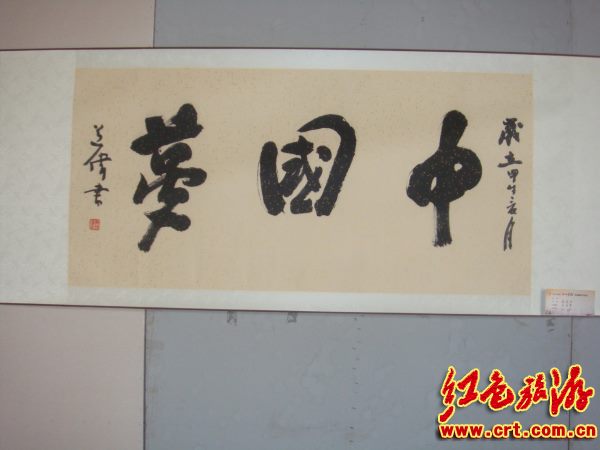 歲在甲午六月
中國夢
红色旅游
www.crt.com.cn